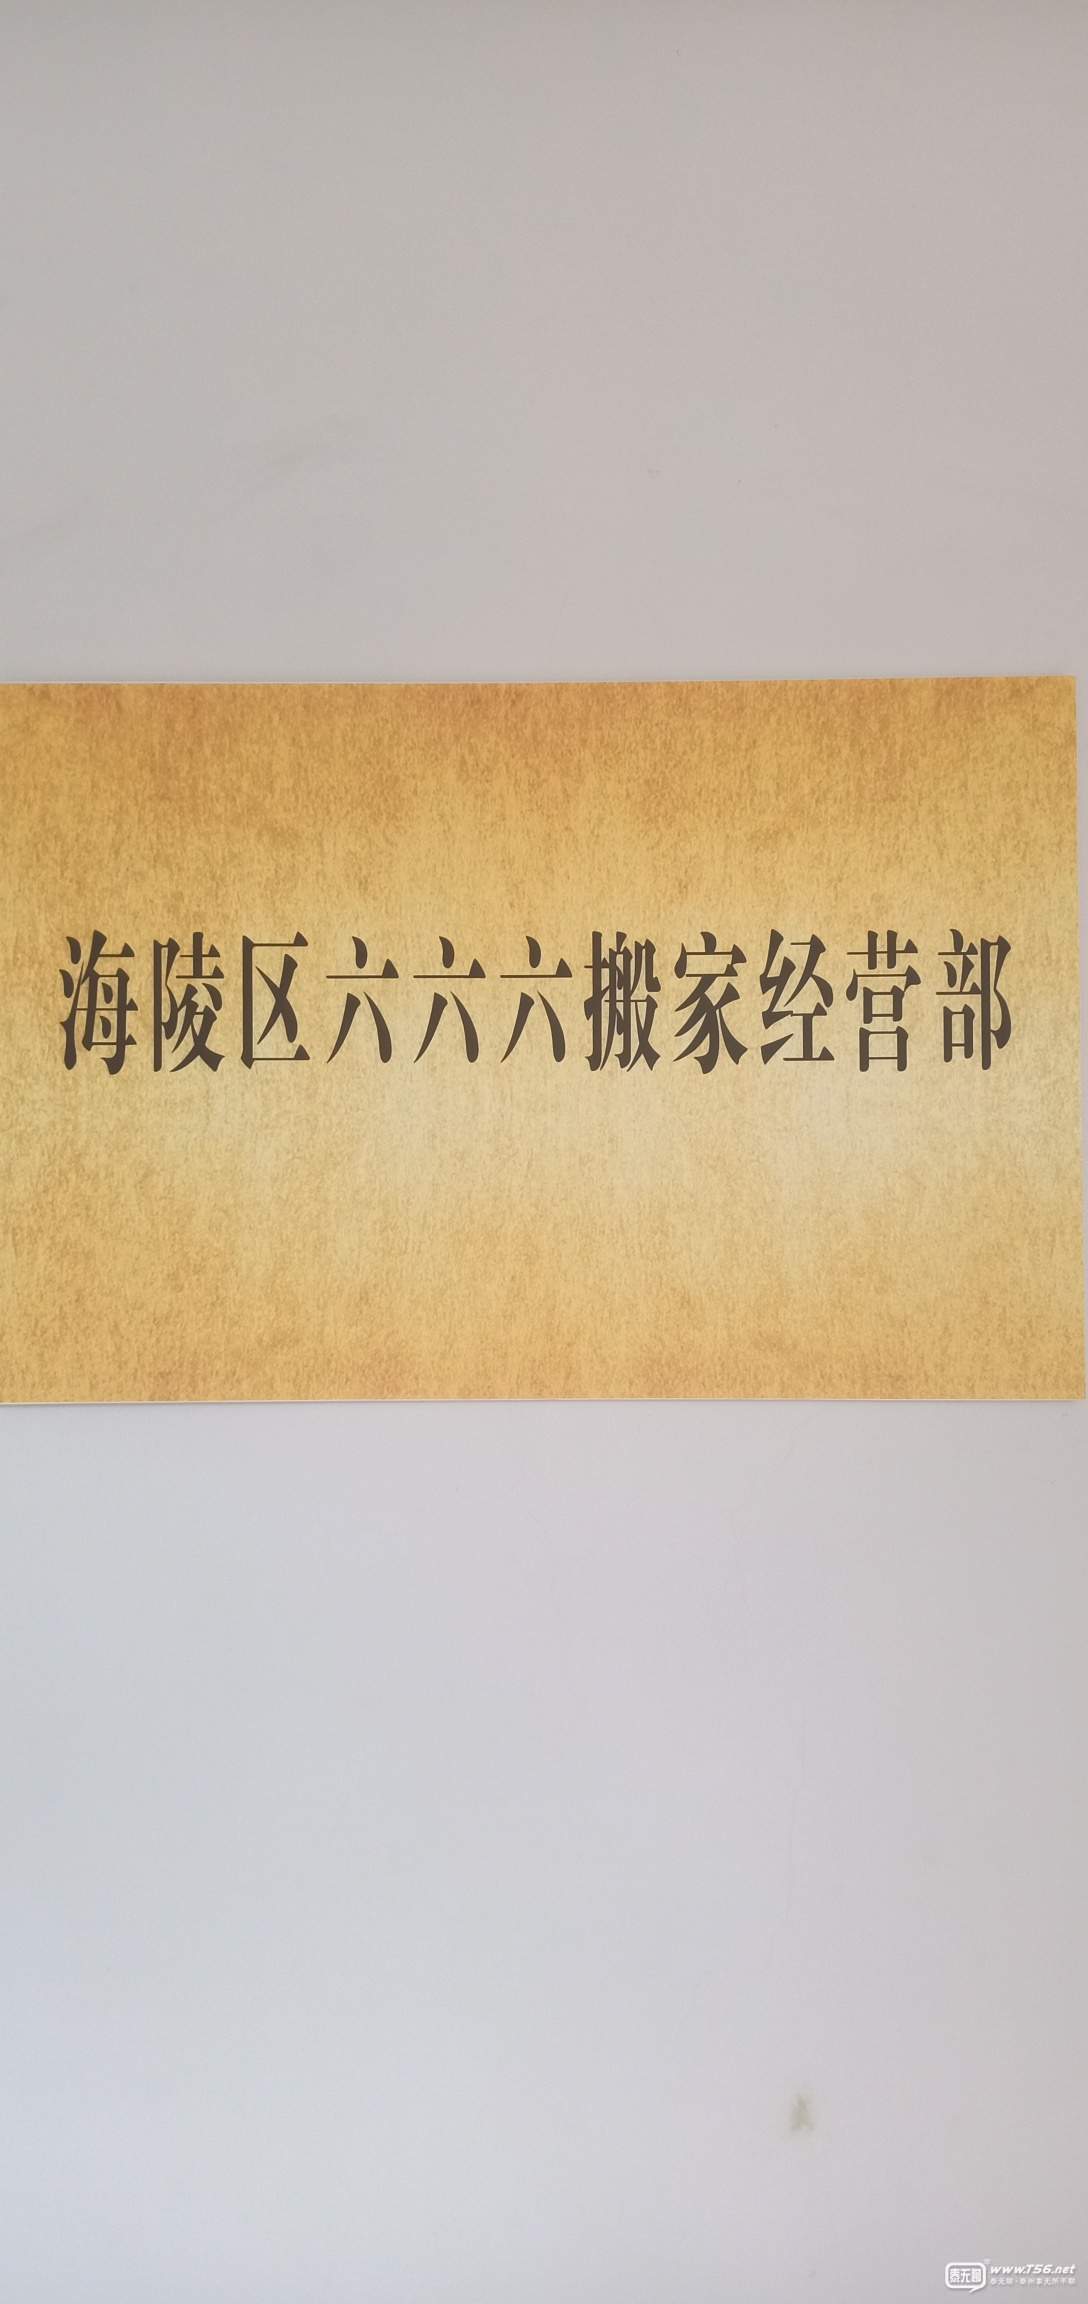 海陵区六六六搬家经营部
泰无聊 www.T56.net